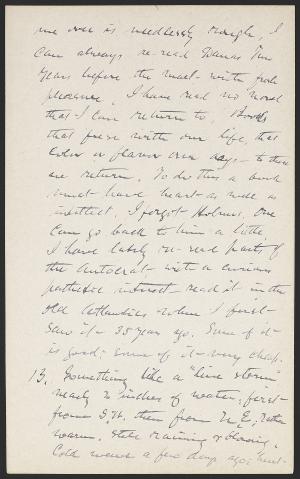 me over is needlessly rough. I
can always re-read Danas Two
Years before the mast with fresh
pleasure. I have read no novel
that I can return to. Books
that fuse with our life, that
color or flavor our days - to those
we return. To do this a book
must have heart as well as
intellect. I forgot Holmes. One
can go back to him a little
I have lately re-read parts of
the Autocrat - with a curious
pathetic interest - read it in the
old Atlantics when I first
saw it - 35 years ago. Some of it
is good; some of it - very cheap.
13. Something like a "line storm"
nearly 2 inches of water; first
from S.W. then from N.E., rather
warm. Still raining & blowing.
Cold wave a few days ago; next